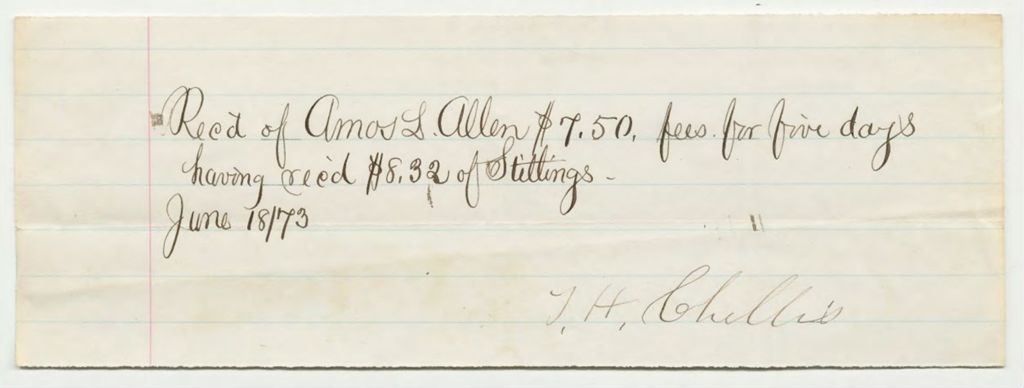 Rec'd of Amos L. Allen $7.50, fees for five days
having rec'd $8.32 of Stillings -
June 18/73
T. H. Chellis